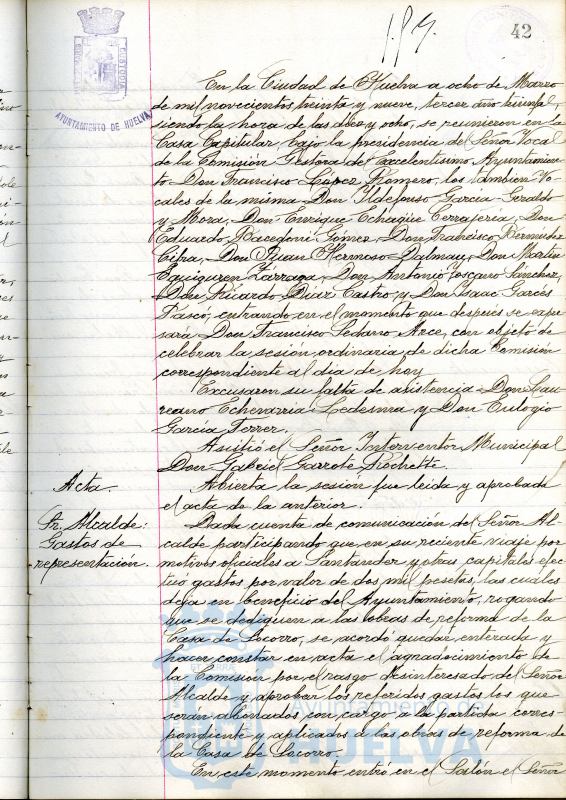 42
AYUNTAMIENTO DE HUELVA
En la Ciudad de Huelva a ocho de Marzo
de mil novecientos treinta y nueve, tercer año triunfal,
siendo la hora de las diez y ocho, se reunieron en la
Casa Capitular, bajo la presidencia del Señor Vocal
de la Comisión Gestora del Excelentísimo Ayuntamien-
to Don Francisco López Romero, los también Vo-
cales de la misma Don Ildefonso García-Geraldo
y Mora, Don Enrique Echagüe Cerrajería, Don
Eduardo Bacedoni Gómez, Don Francisco Bermúdez
Cifra, Don Juan Hermoso Dalmau, Don Martín
Eguiguren Lárraga, Don Antonio Toscano Sánchez,
Don Ricardo Díaz Castro, y Don Isaac Garcés
Tascó, entrando en el momento que después se expre-
sará Don Francisco Sedano Arce, con objeto de
celebrar la sesión ordinaria de dicha Comisión
correspondiente al día de hoy.
Excusaron su falta de asistencia Don Lau-
reano Echevarria Ledesma y Don Eulogio
García Ferrer.
Asistió el Señor Interventor Municipal
Don Gabriel Garrote Rochette.
Acta. Abierta la sesión fue leída y aprobada
el acta de la anterior.
Sr. Alcalde:
Gastos de
representación.
Dada cuenta de comunicación del Señor Al-
calde participando que en su reciente viaje por
motivos oficiales a Santander y otras capitales efec-
tuó gastos por valor de dos mil pesetas, las cuales
deja en beneficio del Ayuntamiento, rogando
que se dediquen a las obras de reforma de la
Casa de Socorro, se acordó quedar enterada y
hacer constar en acta el agradecimiento de
la Comisión por el rasgo desinteresado del Señor
Alcalde y aprobar los referidos gastos los que
serán abonados con cargo a la partida corres-
pondiente y aplicados a las obras de reforma de
la Casa de Socorro.
En este momento entró en el Salón el Señor
Ayuntamiento de
HUELVA